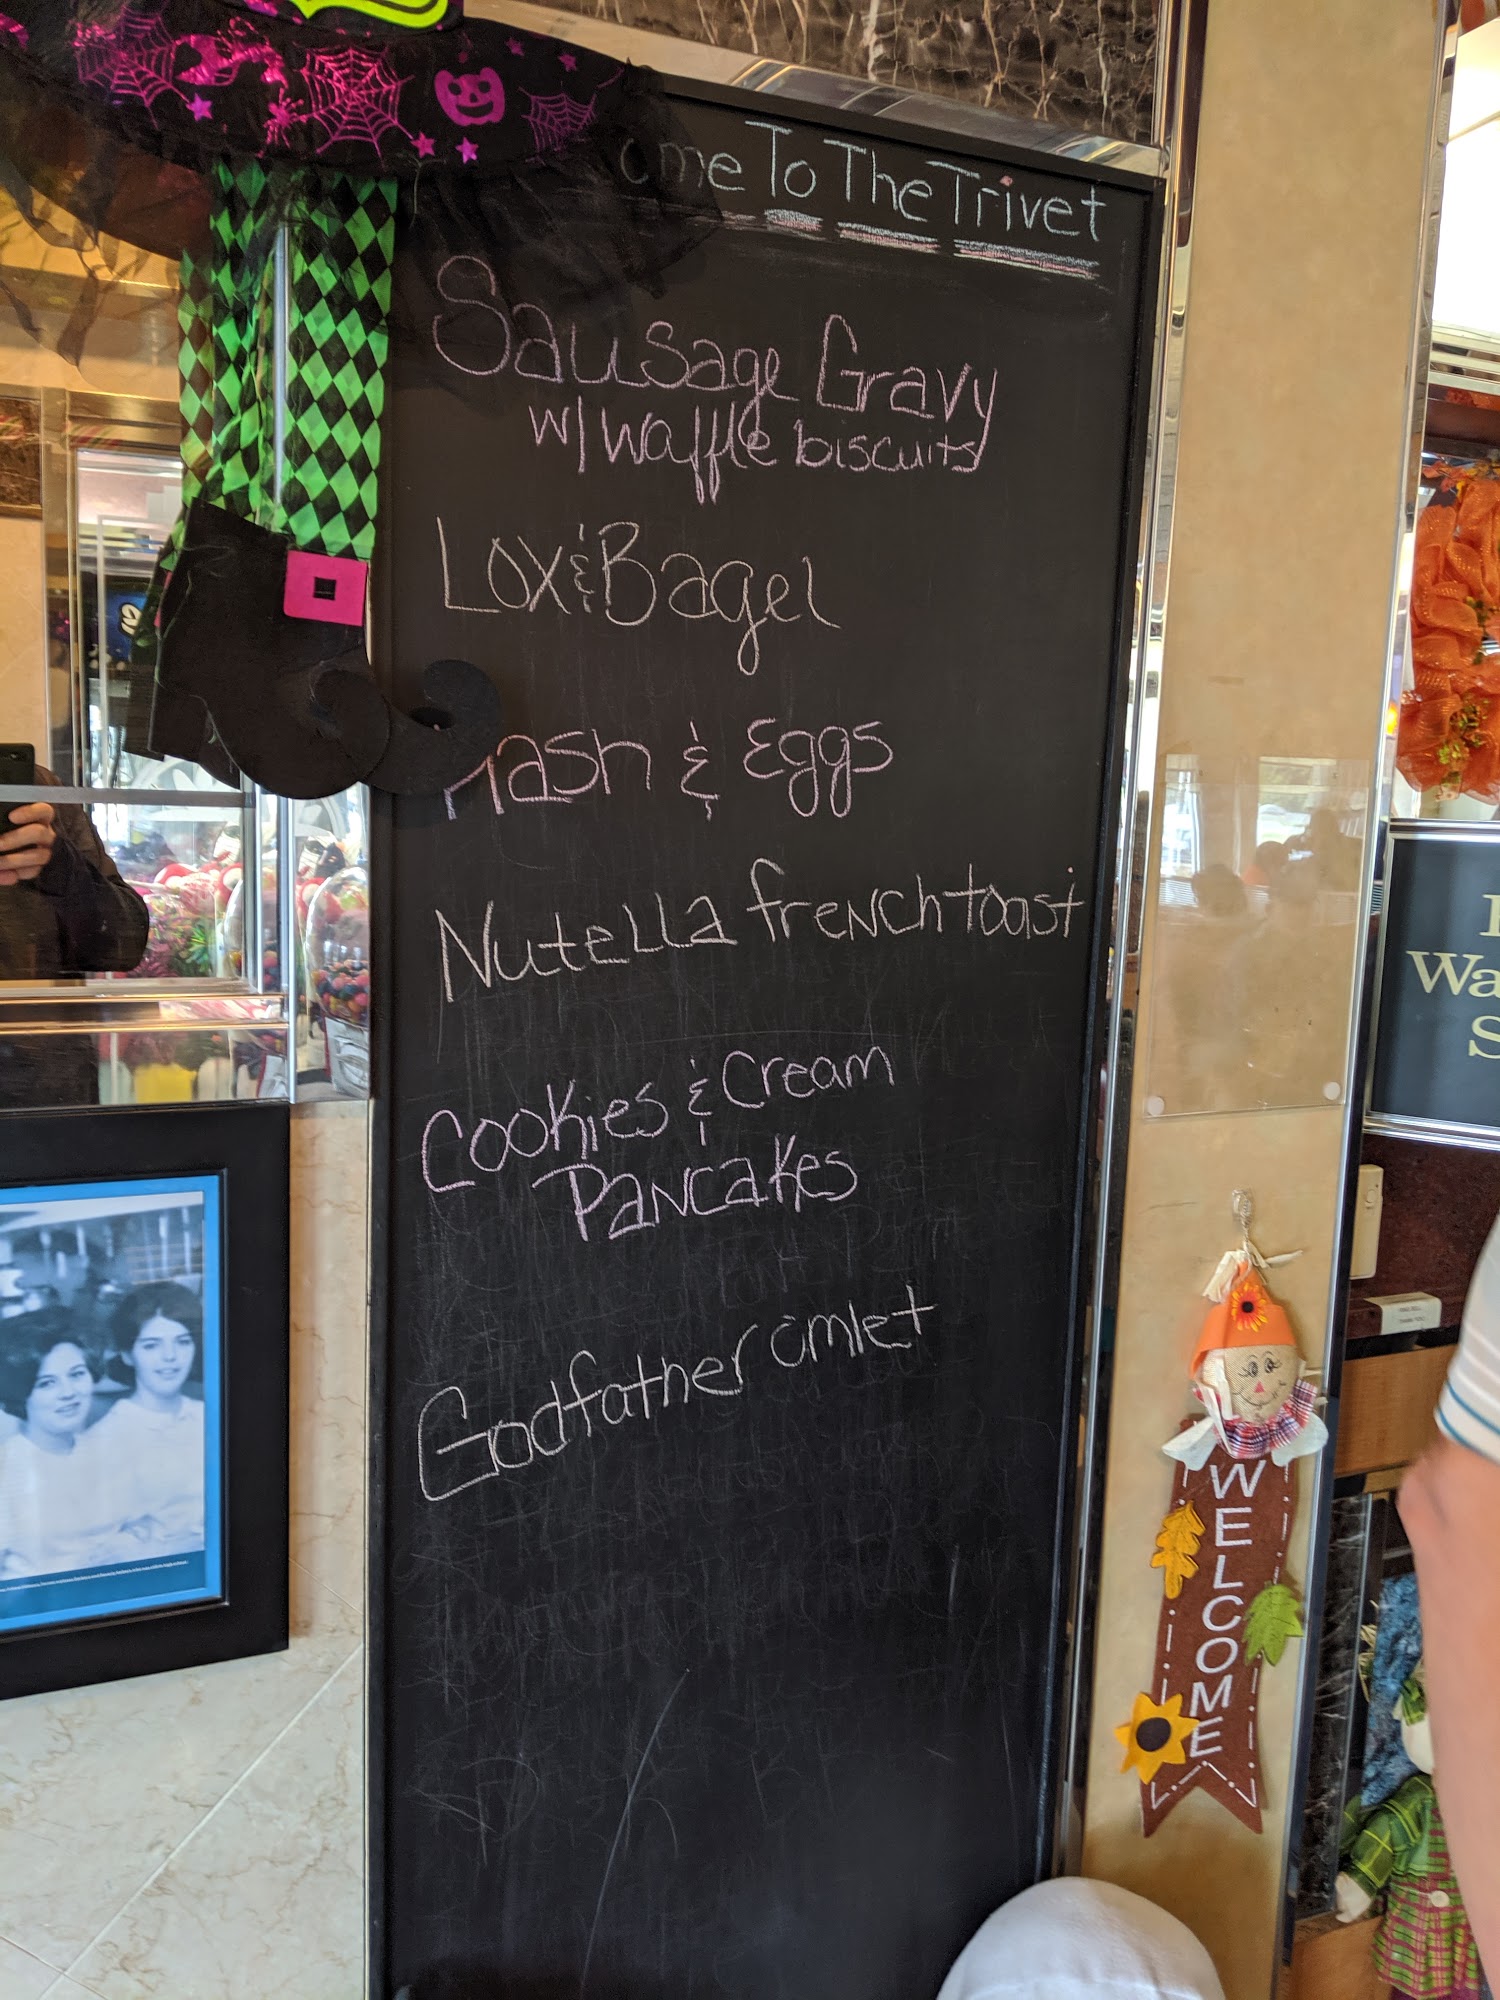 ome To The Trivet
Sausage Gravy
w/ waffle biscuits
Lox & Bagel
Hash & Eggs
Nutella french toast
Cookies & Cream
Pancakes
Godfather omlet
Wa
S
WELCOME